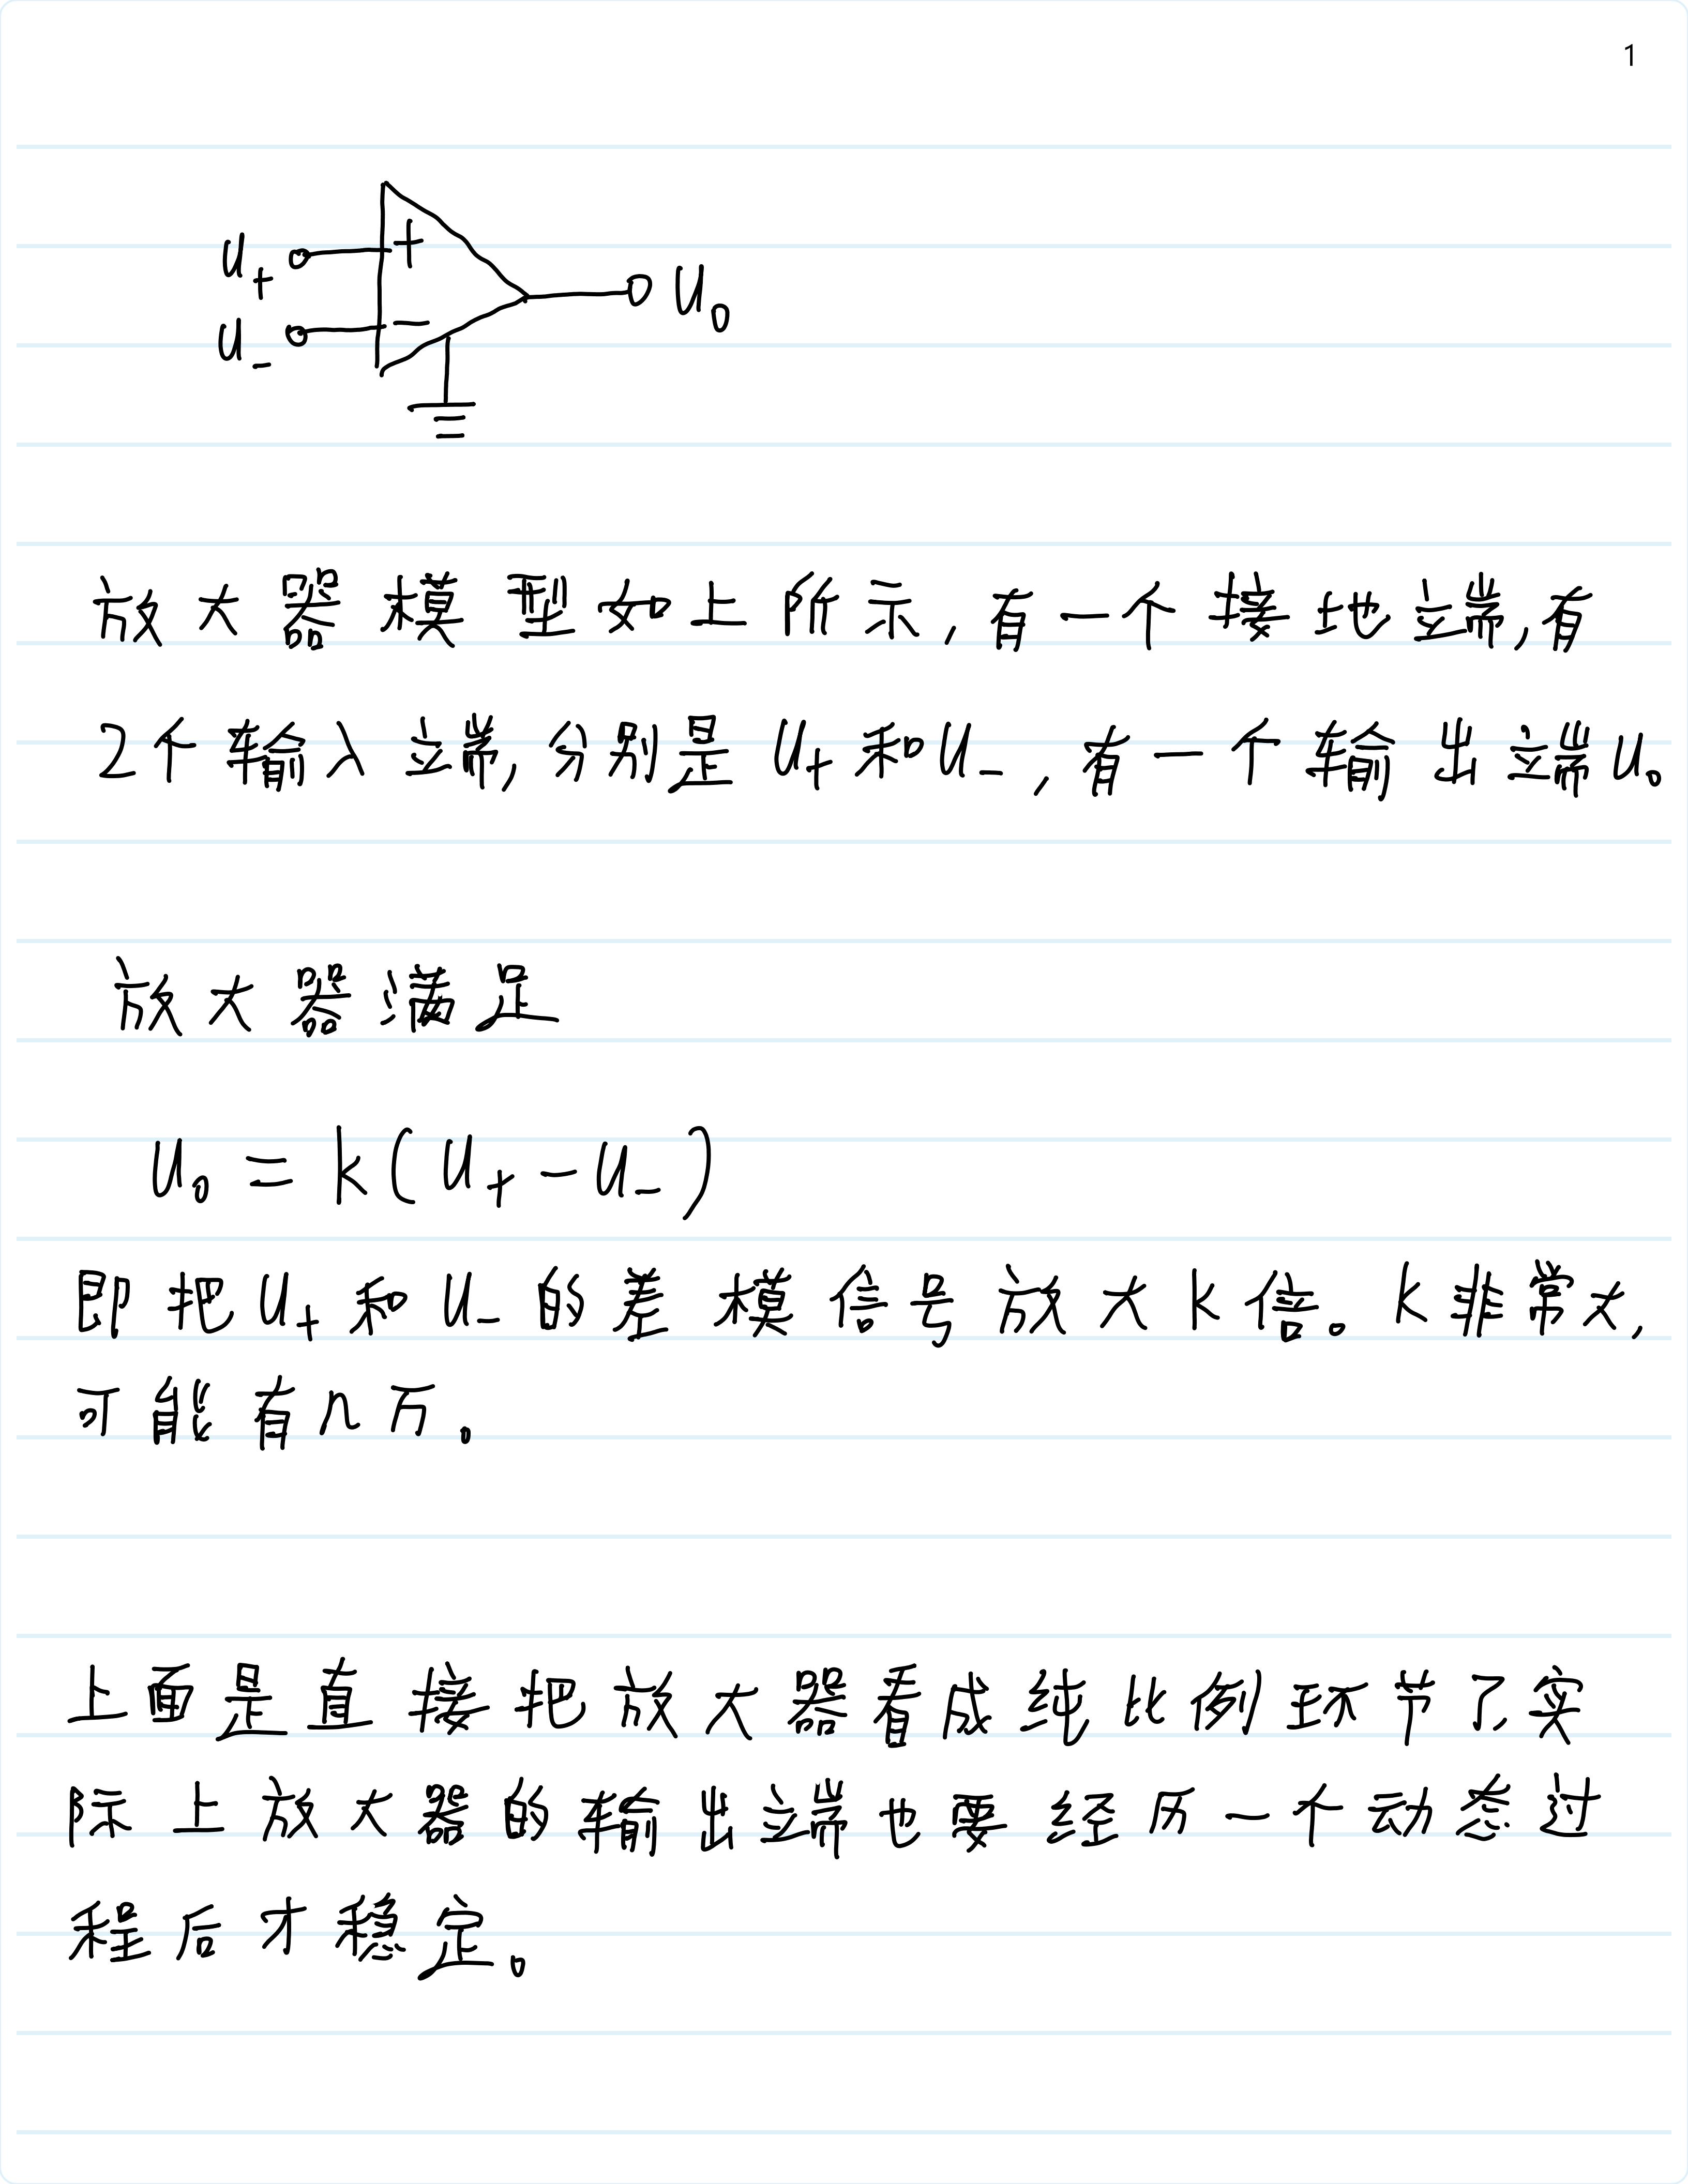 1
u+
u-
+
-
u0
放大器模型如上所示,有一个接地端,有
2个输入端,分别是 u+ 和 u-,有一个输出端 u。
放大器满足
u0 = k(u+ - u-)
即把 u+ 和 u- 的差模信号放大 k 倍。k 非常大,
可能有几万。
上面是直接把放大器看成纯比例环节了,实
际上放大器的输出端也要经历一个动态过
程后才稳定。